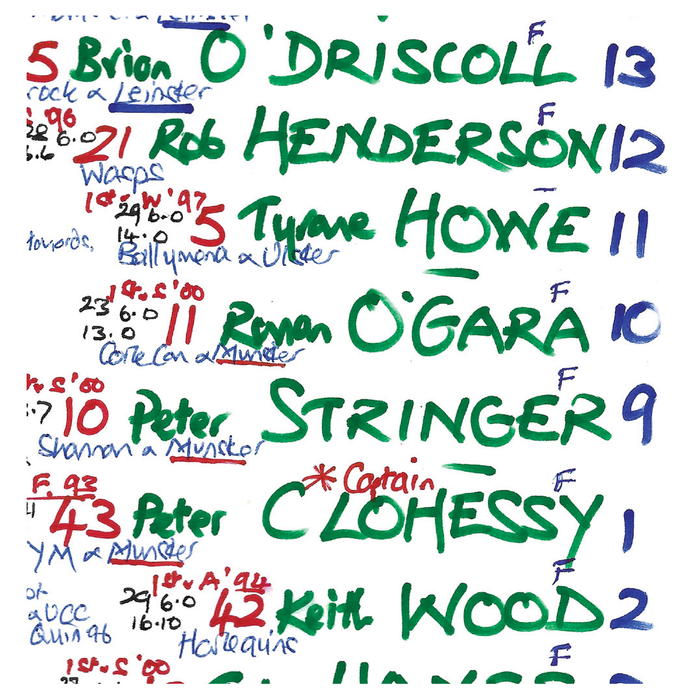 5 Brian O'DRISCOLL F 13
rock & Leinster
'96
6.0 21 Rob HENDERSON F 12
Wasps
1st v. W '97
29 6.0
14.0 5 Tyrone HOWE 11
towards, Ballymena & Ulster
1st v. S '00
23 6.0
13.0 11 Ronan O'GARA F 10
Cork Con & Munster
v. S '00
.7 10 Peter STRINGER F 9
Shannon & Munster
* Captain
F. 93
43 Peter CLOHESSY F 1
YM & Munster
1st v. A '94
29 6.0
16.10 42 Keith WOOD F 2
& UCC
Quin 96
Harlequins
1st v. S '00
F